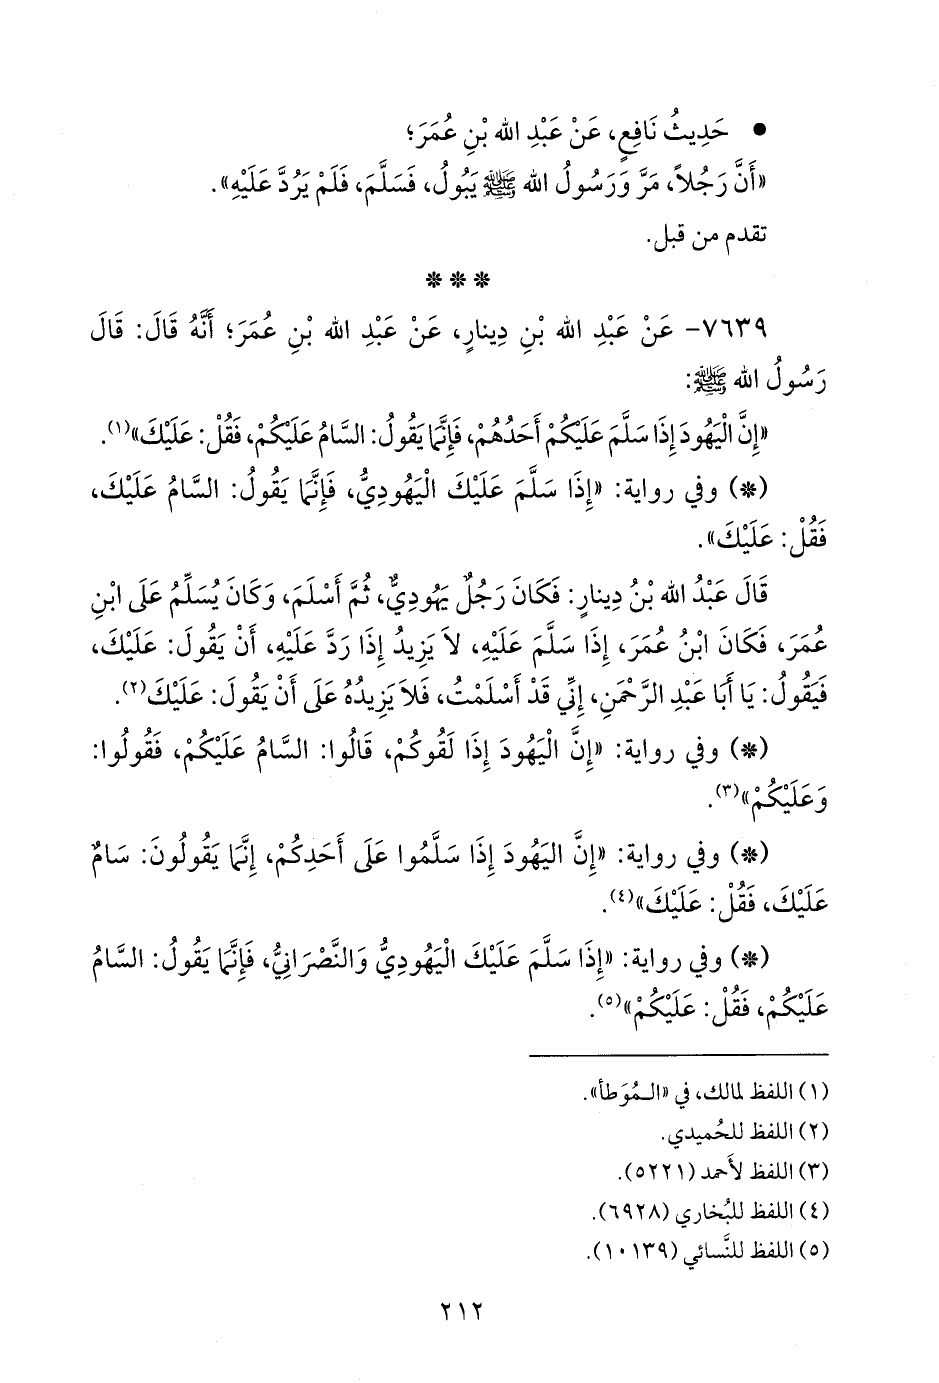 ● حَدِيثُ نَافِعٍ، عَنْ عَبْدِ الله بْنِ عُمَرَ؛
«أَنَّ رَجُلاً، مَرَّ وَرَسُولُ الله ﷺ يَبُولُ، فَسَلَّمَ، فَلَمْ يَرُدَّ عَلَيْهِ».
تقدم من قبل.
* * *
٧٦٣٩- عَنْ عَبْدِ الله بْنِ دِينارٍ، عَنْ عَبْدِ الله بْنِ عُمَرَ؛ أَنَّهُ قَالَ: قَالَ
رَسُولُ الله ﷺ:
«إِنَّ الْيَهُودَ إِذَا سَلَّمَ عَلَيْكُمْ أَحَدُهُمْ، فَإِنَّمَا يَقُولُ: السَّامُ عَلَيْكُمْ، فَقُلْ: عَلَيْكَ»(١).
(*) وفي رواية: «إِذَا سَلَّمَ عَلَيْكَ الْيَهُودِيُّ، فَإِنَّمَا يَقُولُ: السَّامُ عَلَيْكَ،
فَقُلْ: عَلَيْكَ».
قَالَ عَبْدُ الله بْنُ دِينارٍ: فَكَانَ رَجُلٌ يَهُودِيٌّ، ثُمَّ أَسْلَمَ، وَكَانَ يُسَلِّمُ عَلَى ابْنِ
عُمَرَ، فَكَانَ ابْنُ عُمَرَ، إِذَا سَلَّمَ عَلَيْهِ، لاَ يَزِيدُ إِذَا رَدَّ عَلَيْهِ، أَنْ يَقُولَ: عَلَيْكَ،
فَيَقُولُ: يَا أَبَا عَبْدِ الرَّحْمَنِ، إِنِّي قَدْ أَسْلَمْتُ، فَلاَ يَزِيدُهُ عَلَى أَنْ يَقُولَ: عَلَيْكَ(٢).
(*) وفي رواية: «إِنَّ الْيَهُودَ إِذَا لَقُوكُمْ، قَالُوا: السَّامُ عَلَيْكُمْ، فَقُولُوا:
وَعَلَيْكُمْ»(٣).
(*) وفي رواية: «إِنَّ اليَهُودَ إِذَا سَلَّمُوا عَلَى أَحَدِكُمْ، إِنَّمَا يَقُولُونَ: سَامٌ
عَلَيْكَ، فَقُلْ: عَلَيْكَ»(٤).
(*) وفي رواية: «إِذَا سَلَّمَ عَلَيْكَ الْيَهُودِيُّ وَالنَّصْرَانِيُّ، فَإِنَّمَا يَقُولُ: السَّامُ
عَلَيْكُمْ، فَقُلْ: عَلَيْكُمْ»(٥).
(١) اللفظ لمالك، في «الـمُوَطأ».
(٢) اللفظ للحُميدي.
(٣) اللفظ لأَحمد (٥٢٢١).
(٤) اللفظ للبُخاري (٦٩٢٨).
(٥) اللفظ للنَّسائي (١٠١٣٩).
٢١٢